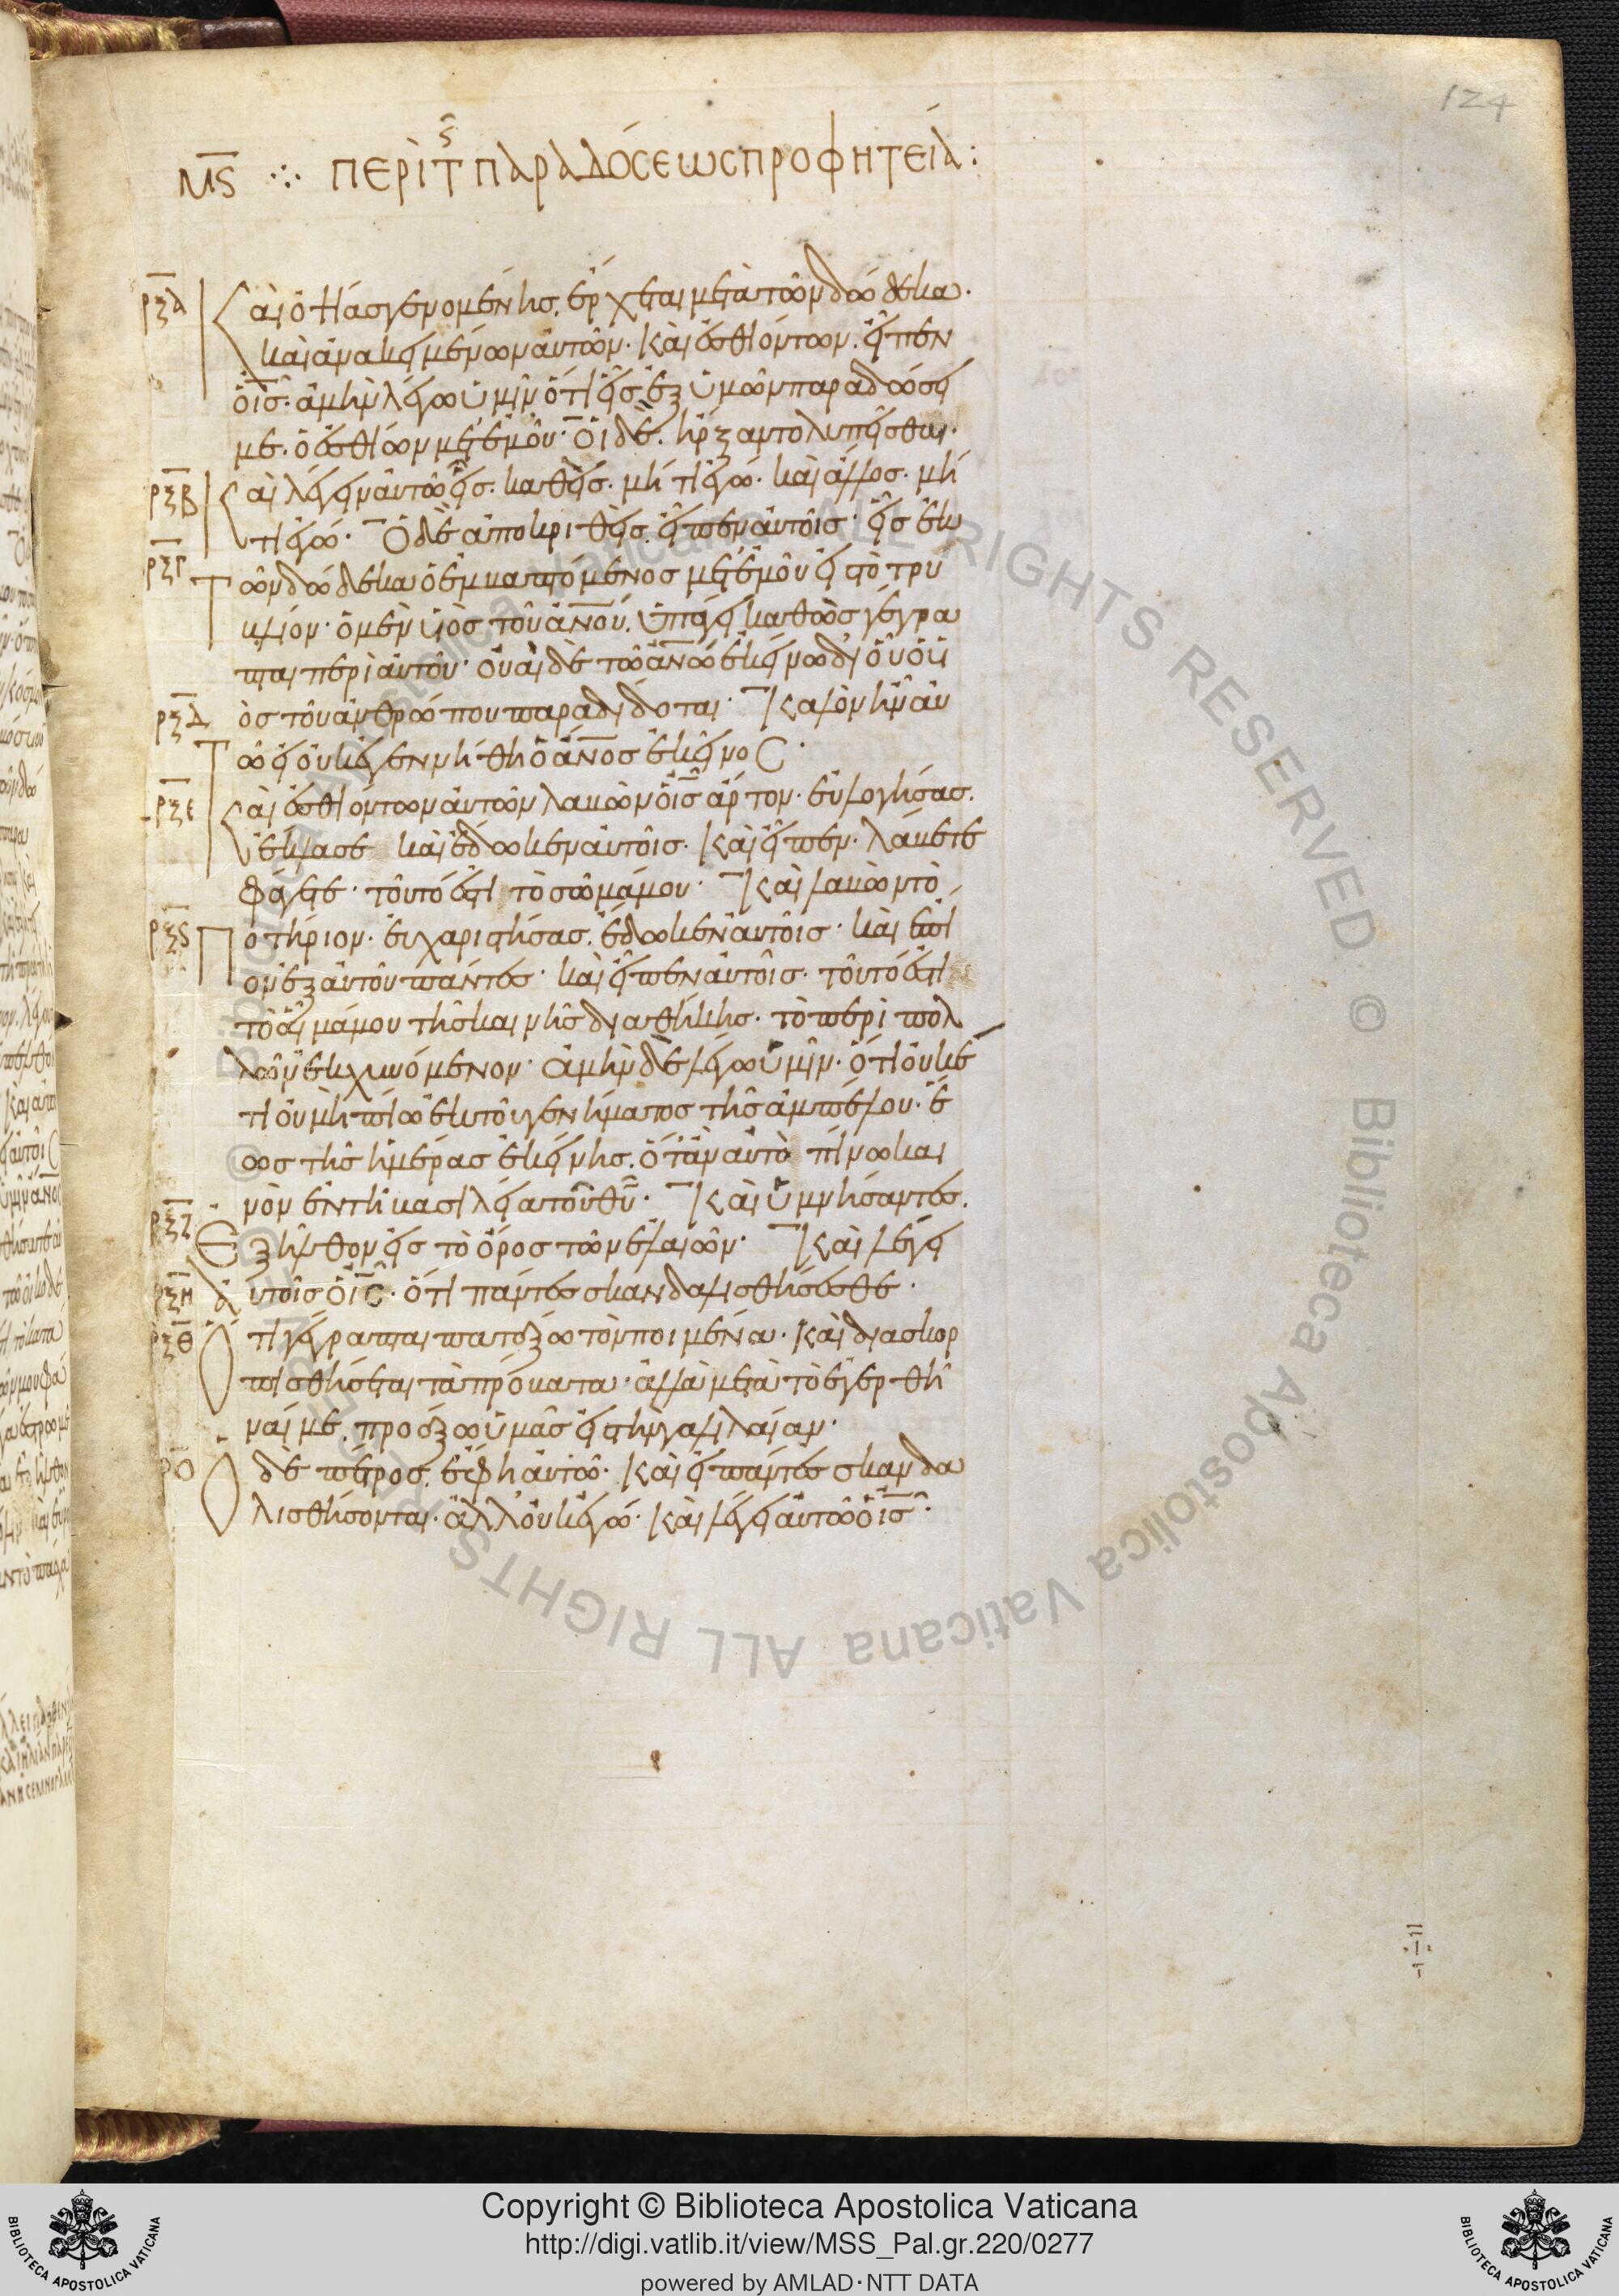 124
μϛ ⁘ περὶ τ̅ς̑ παραδόσεως προφητεία:
ρξα Καὶ ὀψίας γενομένης. ἔρχεται μετὰ τῶν δώδεκα.
καὶ ἀνακειμένων αὐτῶν. καὶ ἐσθιόντων. εἶπεν
ὁ ις. ἀμὴν λέγω ὑμῖν ὅτι εἷς ἐξ ὑμῶν παραδώσει
με. ὁ ἐσθίων μετ' ἐμοῦ· οἱ δὲ. ἤρξαντο λυπεῖσθαι.
ρξβ Καὶ λέγειν αὐτῷ εἷς καθεῖς. μή τι ἐγώ. καὶ ἄλλος. μή
τι ἐγώ. Ὁ δὲ ἀποκριθεὶς. εἶπεν αὐτοῖς· εἷς ἐκ
ρξγ Τῶν δώδεκα ὁ ἐμβαπτόμενος μετ' ἐμοῦ εἰς τὸ τρυ
βλίον· ὁ μὲν υἱὸς τοῦ ανου. ὑπάγει καθὼς γέγρα
πται περὶ αὐτοῦ· οὐαὶ δὲ τῷ ανω ἐκείνω δι' οὗ ὁ υἱ
ρξδ ὸς τοῦ ἀνθρώπου παραδίδοται· Καλὸν ἦν αυ
Τῶ εἰ οὐκ ἐγεννήθη ὁ ανος ἐκεῖνος·
ρξε Καὶ ἐσθιόντων αὐτῶν λαβὼν ὁ ις ἄρτον. εὐλογήσας.
ἔκλασε καὶ ἔδωκεν αὐτοῖς. καὶ εἶπεν. λάβετε
φάγετε· τοῦτό ἐστι τὸ σῶμά μου· Καὶ λαβὼν τὸ
ρξϛ Ποτήριον. εὐχαριστήσας. ἔδωκεν αὐτοῖς· καὶ ἔπι
ον ἐξ αὐτοῦ πάντες· καὶ εἶπεν αὐτοῖς. τοῦτό ἐστι
τὸ αἷμά μου τῆς καινῆς διαθήκης. τὸ περὶ πολ
λῶν ἐκχυνόμενον· ἀμὴν δὲ λέγω ὑμῖν. ὅτι οὐκέ
τι οὐ μὴ πίω ἐκ τοῦ γενήματος τῆς ἀμπέλου. ἕ
ως τῆς ἡμέρας ἐκείνης. ὅταν αὐτὸ πίνω και
νὸν ἐν τῇ βασιλεία τοῦ θυ· Καὶ ὑμνήσαντες.
ρξζ Ἐξῆλθον εἰς τὸ ὄρος τῶν ἐλαιῶν· Καὶ λέγει
ρξη Αὐτοῖς ὁ ις. ὅτι πάντες σκανδαλισθήσεσθε.
ρξθ Ὅτι γέγραπται πατάξω τὸν ποιμένα. καὶ διασκορ
πισθήσεται τὰ πρόβατα. ἀλλὰ μετὰ τὸ ἐγερθῆ
ναί με. προάξω ὑμᾶς εἰς τὴν γαλιλαίαν.
ρο Ὁ δὲ πέτρος. ἔφη αὐτῶ. καὶ εἰ πάντες σκανδα
λισθήσονται. ἀλλ' οὐκ ἐγώ. καὶ λέγει αὐτῶ ὁ ις.
© Biblioteca Apostolica Vaticana ALL RIGHTS RESERVED © Biblioteca Apostolica Vaticana ALL RIGHTS RESERVED
Copyright © Biblioteca Apostolica Vaticana
http://digi.vatlib.it/view/MSS_Pal.gr.220/0277
powered by AMLAD·NTT DATA
BIBLIOTECA APOSTOLICA VATICANA
BIBLIOTECA APOSTOLICA VATICANA